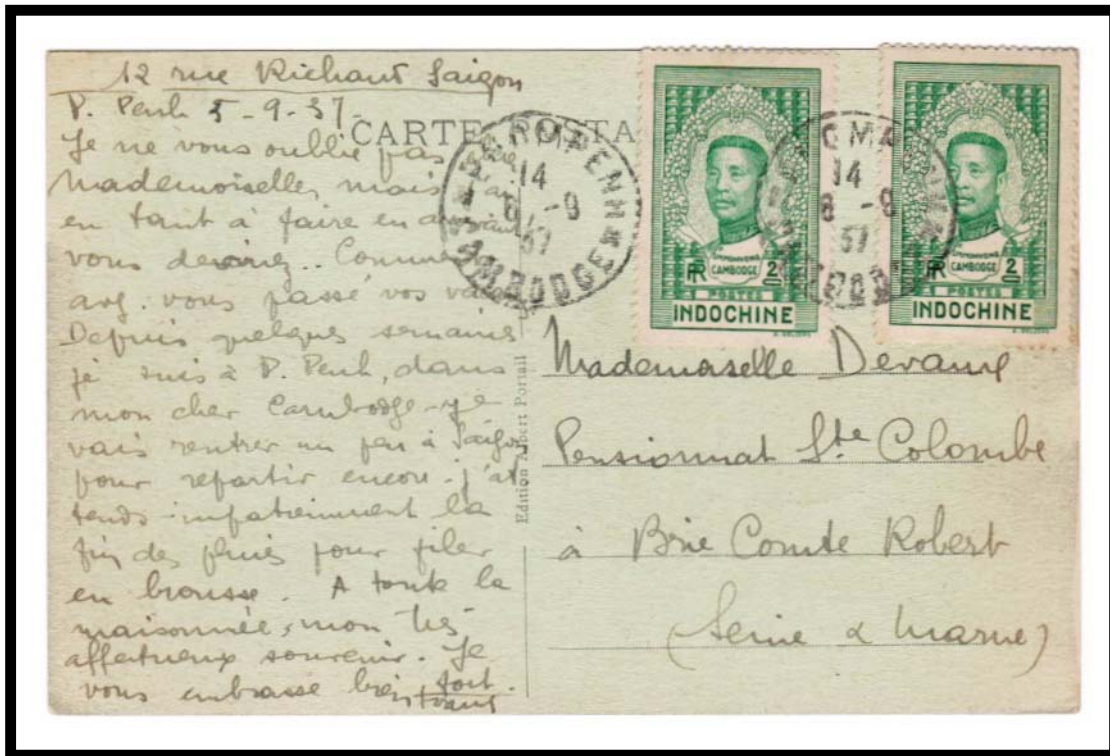 12 rue Richaud Saigon
P. Penh 5-9-37-
Je ne vous oublie pas
Mademoiselle, mais
en tant à faire en
vous devinez.. Comment
avz. vous passé vos
Depuis quelques semaines
je suis à P. Penh, dans
mon cher Cambodge. Je
vais rentrer un peu à Saïgon
pour repartir encore. J'at
tends impatiemment la
fin des pluies pour filer
en brousse. A toute la
maisonnée, mon très
affectueux souvenir. Je
vous embrasse bien fort.
CARTE POSTA
Edition Albert Portail
PNOMPENH
14
-9
37
CAMBODGE
14
8 -9
37
RF
CAMBODGE
2
POSTES
INDOCHINE
RF
CAMBODGE
2
POSTES
INDOCHINE
Mademoiselle
Pensionnat Ste Colombe
à Brie Comte Robert
(Seine & Marne)